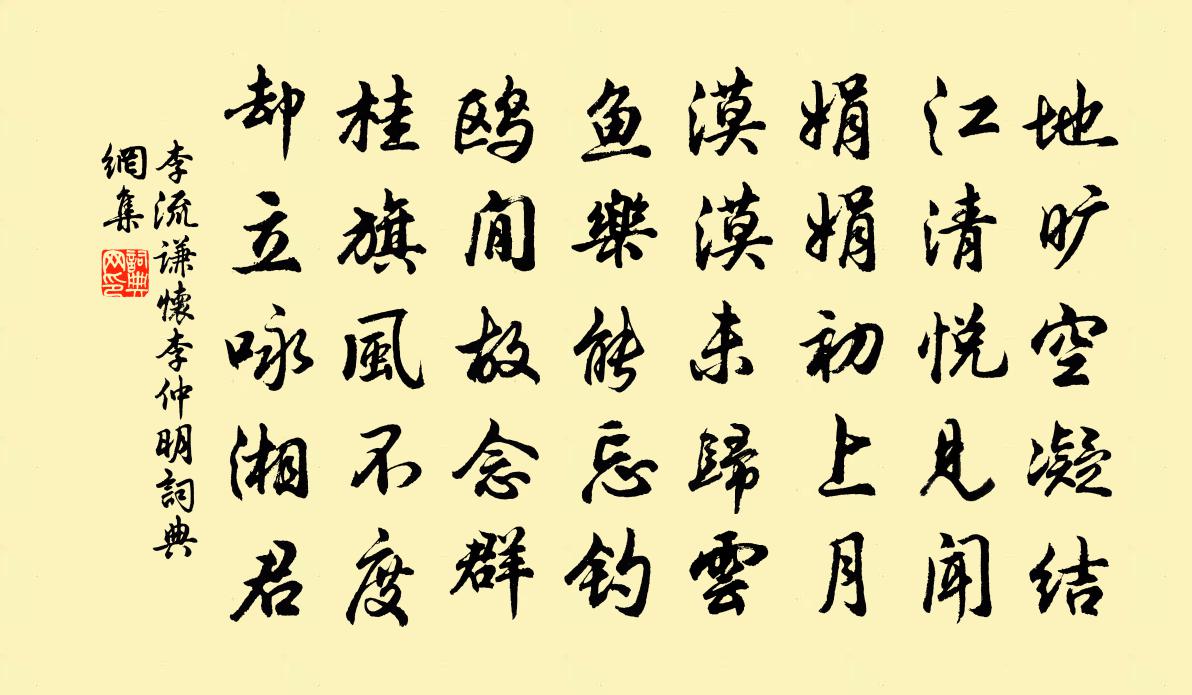 地旷空凝结
江清悦见闻
娟娟初上月
漠漠未歸雲
鱼樂能忘钓
鸥闲故念群
桂旗風不度
却立咏湘君
李流谦懷李仲明詞典
網集
詞典
网印